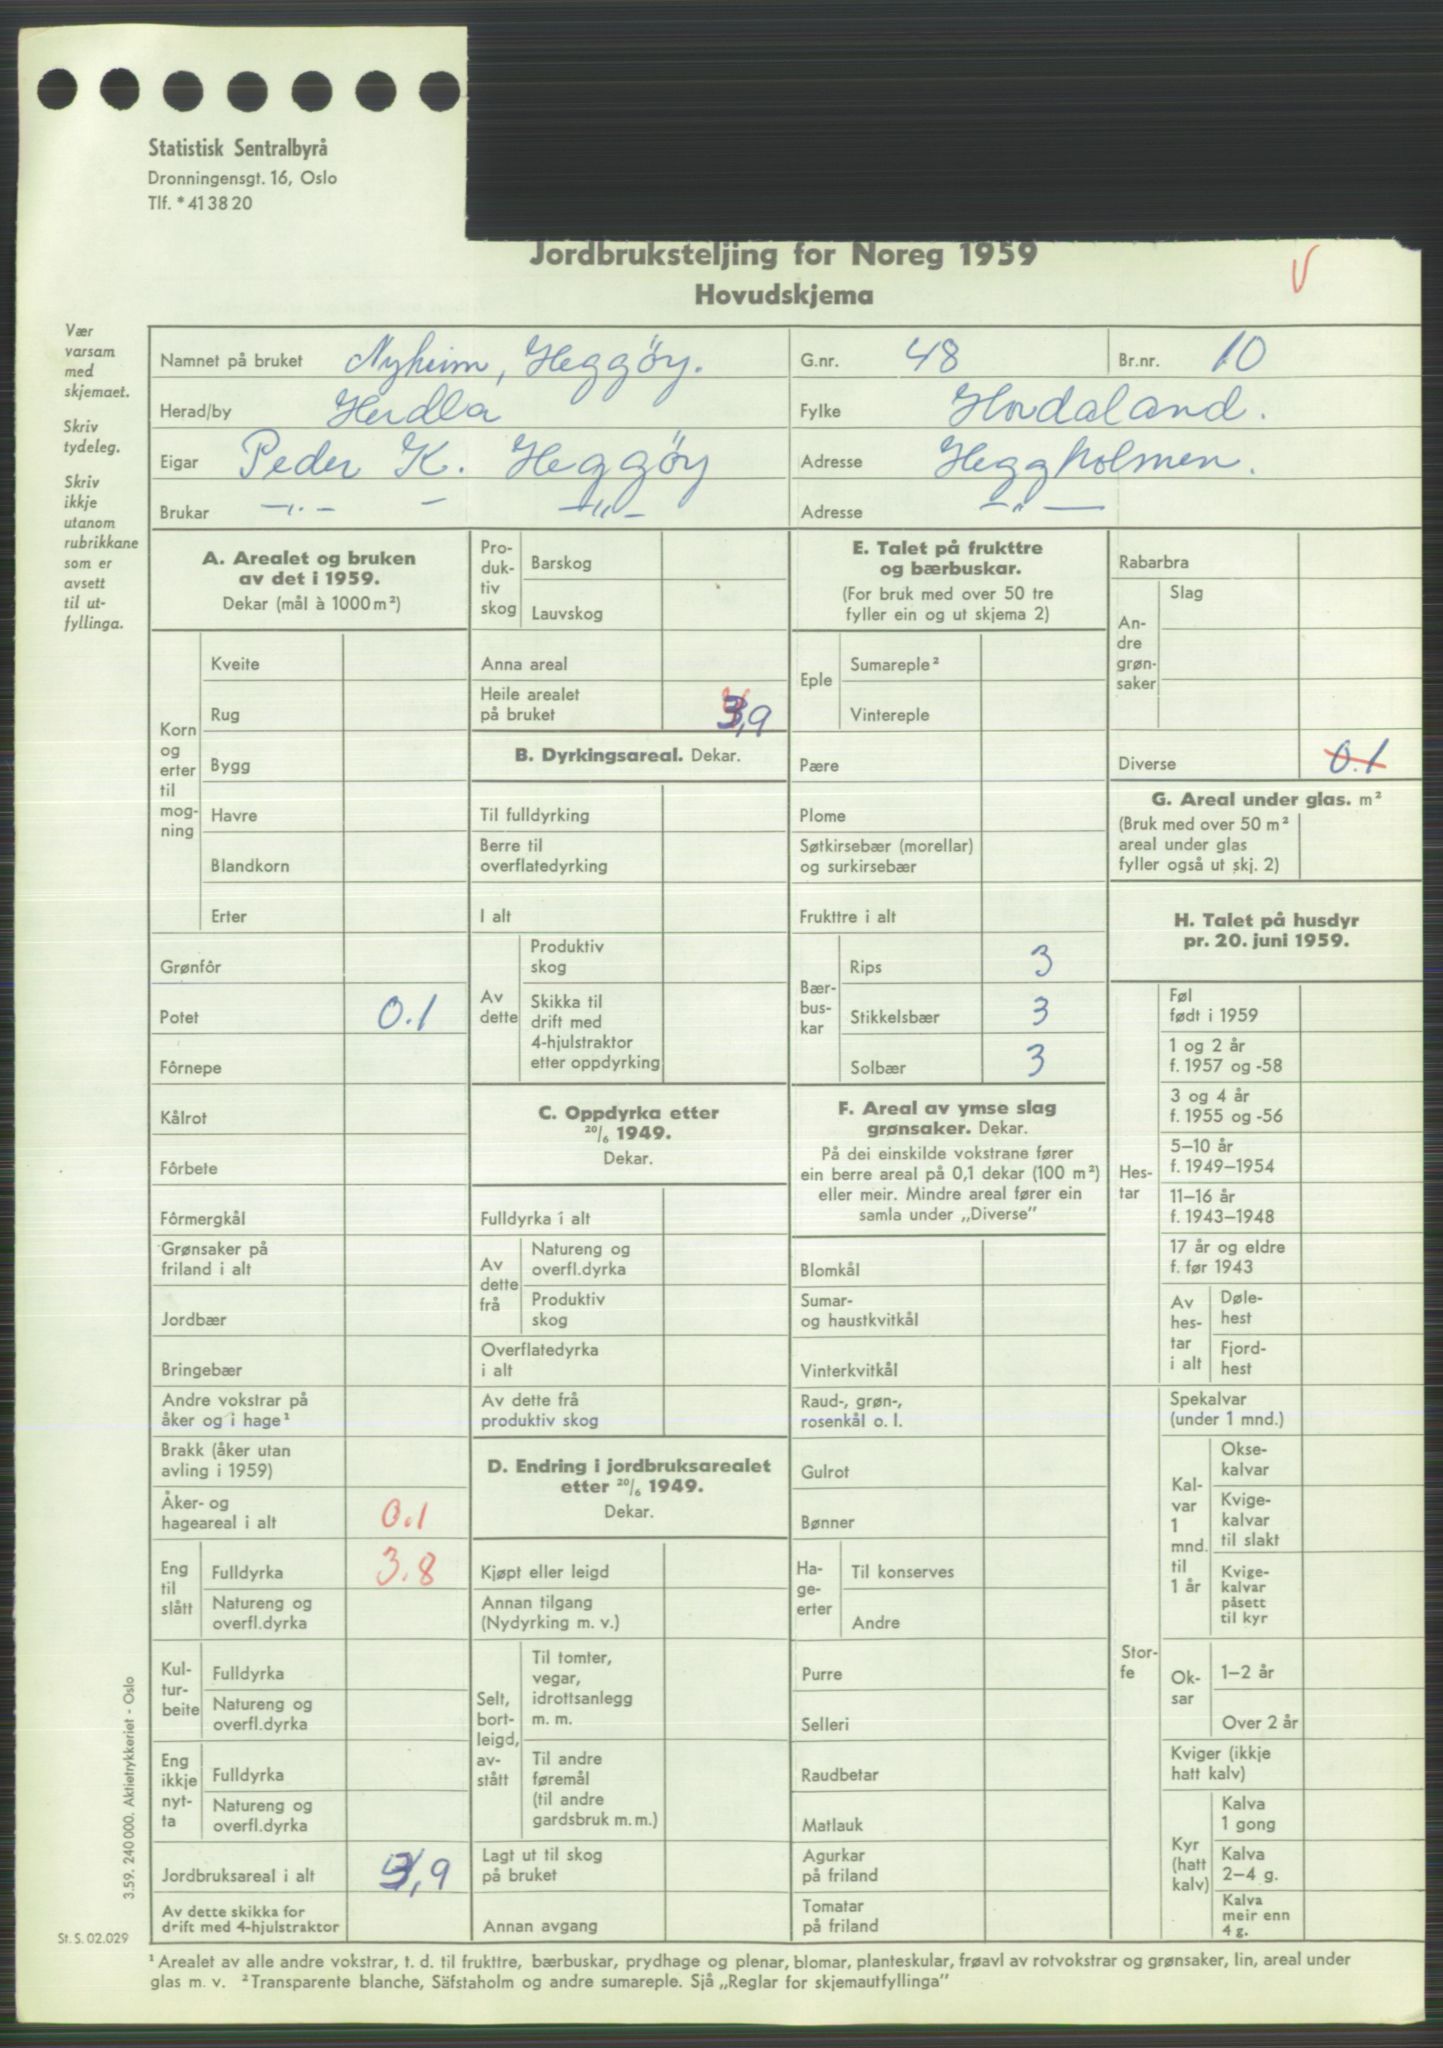 Statistisk Sentralbyrå
Dronningensgt. 16, Oslo
Tlf. * 41 38 20
Jordbruksteljing for Noreg 1959
Hovudskjema
V
Vær
varsam
med
skjemaet.
Skriv
tydeleg.
Skriv
ikkje
utanom
rubrikkane
som er
avsett
til ut-
fyllinga.
Namnet på bruket Nyheim, Heggöy. G.nr. 48 Br.nr. 10
Herad/by Herdla Fylke Hordaland.
Eigar Peder K. Heggöy Adresse Heggholmen.
Brukar —„— — —„— Adresse —„—
A. Arealet og bruken
av det i 1959.
Dekar (mål à 1000 m²)
Korn
og
erter
til
mog-
ning
Kveite
Rug
Bygg
Havre
Blandkorn
Erter
Grønfôr
Potet 0.1
Fôrnepe
Kålrot
Fôrbete
Fôrmergkål
Grønsaker på
friland i alt
Jordbær
Bringebær
Andre vokstrar på
åker og i hage¹
Brakk (åker utan
avling i 1959)
Åker- og
hageareal i alt 0.1
Eng
til
slått
Fulldyrka 3.8
Natureng og
overfl.dyrka
Kul-
tur-
beite
Fulldyrka
Natureng og
overfl.dyrka
Eng
ikkje
nyt-
ta
Fulldyrka
Natureng og
overfl.dyrka
Jordbruksareal i alt 3,9
Av dette skikka for
drift med 4-hjulstraktor
Pro-
duk-
tiv
skog
Barskog
Lauvskog
Anna areal
Heile arealet
på bruket 3,9
B. Dyrkingsareal. Dekar.
Til fulldyrking
Berre til
overflatedyrking
I alt
Av
dette
Produktiv
skog
Skikka til
drift med
4-hjulstraktor
etter oppdyrking
C. Oppdyrka etter
20/6 1949.
Dekar.
Fulldyrka i alt
Av
dette
frå
Natureng og
overfl.dyrka
Produktiv
skog
Overflatedyrka
i alt
Av dette frå
produktiv skog
D. Endring i jordbruksarealet
etter 20/6 1949.
Dekar.
Kjøpt eller leigd
Annan tilgang
(Nydyrking m. v.)
Selt,
bort-
leigd,
av-
stått
Til tomter,
vegar,
idrottsanlegg
m. m.
Til andre
føremål
(til andre
gardsbruk m. m.)
Lagt ut til skog
på bruket
Annan avgang
E. Talet på frukttre
og bærbuskar.
(For bruk med over 50 tre
fyller ein og ut skjema 2)
Eple
Sumareple²
Vintereple
Pære
Plome
Søtkirsebær (morellar)
og surkirsebær
Frukttre i alt
Bær-
bus-
kar
Rips 3
Stikkelsbær 3
Solbær 3
F. Areal av ymse slag
grønsaker. Dekar.
På dei einskilde vokstrane fører
ein berre areal på 0,1 dekar (100 m²)
eller meir. Mindre areal fører ein
samla under „Diverse”
Blomkål
Sumar-
og haustkvitkål
Vinterkvitkål
Raud-, grøn-,
rosenkål o. l.
Gulrot
Bønner
Ha-
ge-
erter
Til konserves
Andre
Purre
Selleri
Raudbetar
Matlauk
Agurkar
på friland
Tomatar
på friland
Rabarbra
An-
dre
grøn-
saker
Slag
Diverse 0.1
G. Areal under glas. m²
(Bruk med over 50 m²
areal under glas
fyller også ut skj. 2)
H. Talet på husdyr
pr. 20. juni 1959.
Hes-
tar
Føl
født i 1959
1 og 2 år
f. 1957 og -58
3 og 4 år
f. 1955 og -56
5–10 år
f. 1949–1954
11–16 år
f. 1943–1948
17 år og eldre
f. før 1943
Av
hes-
tar
i alt
Døle-
hest
Fjord-
hest
Stor-
fe
Spekalvar
(under 1 mnd.)
Kal-
var
1
mnd.
til
1 år
Okse-
kalvar
Kvige-
kalvar
til slakt
Kvige-
kalvar
påsett
til kyr
Ok-
sar
1–2 år
Over 2 år
Kviger (ikkje
hatt kalv)
Kyr
(hatt
kalv)
Kalva
1 gong
Kalva
2–4 g.
Kalva
meir enn
4 g.
3.59. 240 000. Aktietrykkeriet - Oslo
St. S. 02.029
¹ Arealet av alle andre vokstrar, t. d. til frukttre, bærbuskar, prydhage og plenar, blomar, planteskular, frøavl av rotvokstrar og grønsaker, lin, areal under
glas m. v. ² Transparente blanche, Säfstaholm og andre sumareple. Sjå „Reglar for skjemautfyllinga”